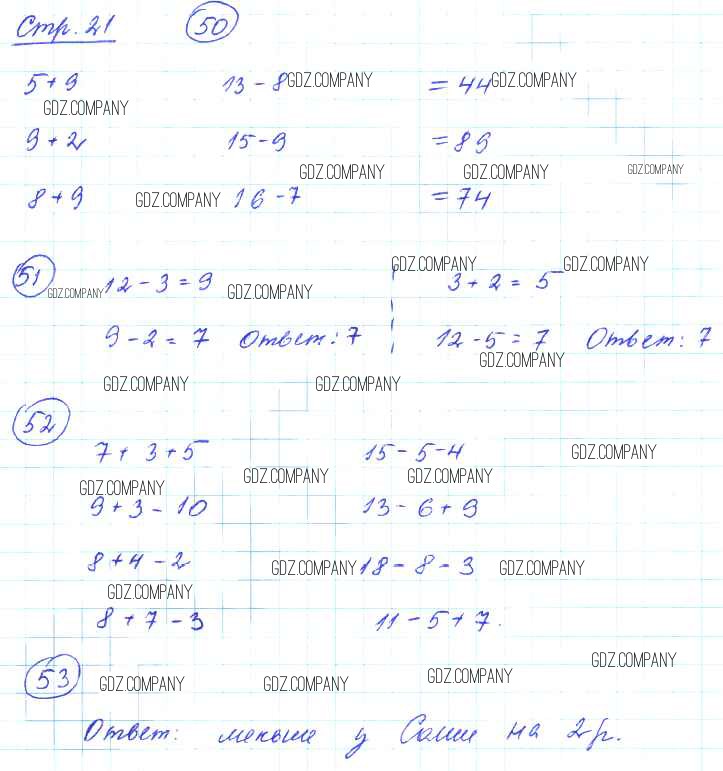 Стр. 21 50
5 + 9 13 - 8 GDZ.COMPANY = 44 GDZ.COMPANY
GDZ.COMPANY
9 + 2 15 - 9 = 89
GDZ.COMPANY GDZ.COMPANY GDZ.COMPANY
8 + 9 GDZ.COMPANY 16 - 7 = 74
GDZ.COMPANY GDZ.COMPANY
51 GDZ.COMPANY 12 - 3 = 9 GDZ.COMPANY 3 + 2 = 5
9 - 2 = 7 Ответ: 7 12 - 5 = 7 Ответ: 7
GDZ.COMPANY
GDZ.COMPANY GDZ.COMPANY
52
7 + 3 + 5 15 - 5 - 4 GDZ.COMPANY
GDZ.COMPANY GDZ.COMPANY GDZ.COMPANY
9 + 3 - 10 13 - 6 + 9
8 + 4 - 2 GDZ.COMPANY 18 - 8 - 3 GDZ.COMPANY
GDZ.COMPANY
8 + 7 - 3 11 - 5 + 7.
GDZ.COMPANY
53 GDZ.COMPANY GDZ.COMPANY GDZ.COMPANY
Ответ: меньше у Саши на 2 р.